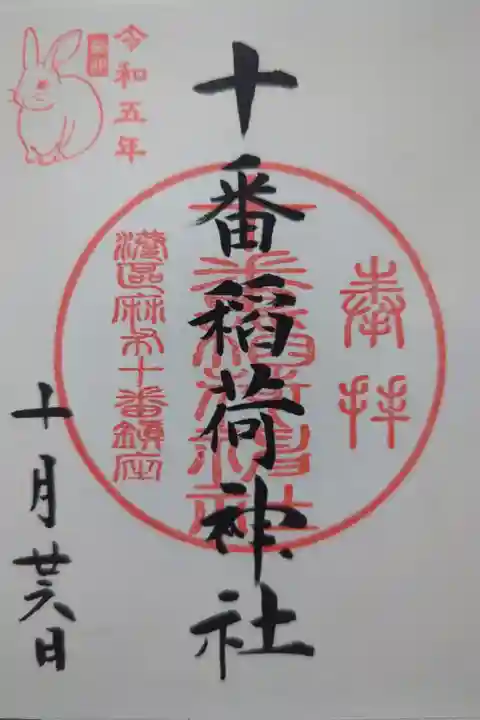 奉拝
十番稲荷神社
十番稲荷神社
港區麻布十番鎮座
令和五年
十月廿六日